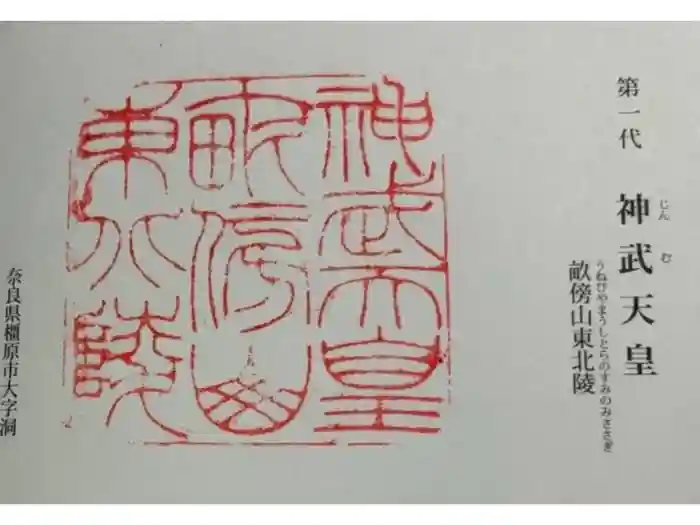 第一代
神武天皇
じんむ
畝傍山東北陵
うねびやまうしとらのすみのみささぎ
神武天皇
畝傍山
東北陵
奈良県橿原市大字洞